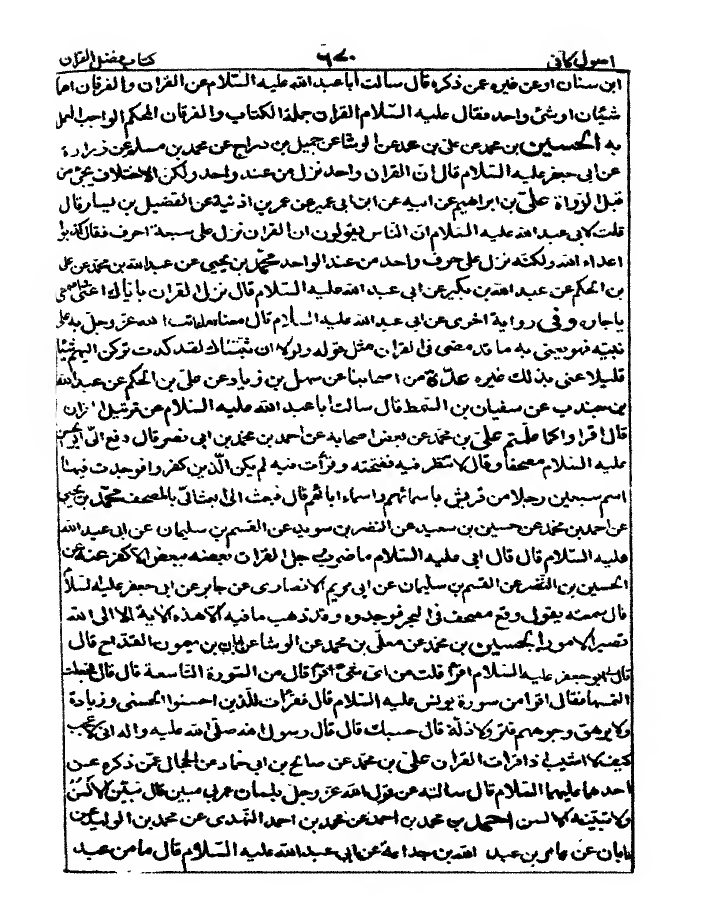 اصول کافی ٦٧٠ کتاب فضل القران
ابن سنان او عن غیره عمن ذکره قال سالت اباعبد الله علیه السّلام عن القران والفرقان اهما
شیئان او شئ واحد فقال علیه السّلام القران جملة الکتاب والفرقان المحکم الواجب العمل
به الحسین بن محمد عن علی بن محمد عن الوشا عن جمیل بن دراج عن محمد بن مسلم عن زرارة
عن ابی جعفر علیه السّلام قال ان القران واحد نزل من عند واحد ولکن الاختلاف یجئ من
قبل الرّواة علیّ بن ابراهیم عن ابیه عن ابن ابی عمیر عن عمر بن اذنیة عن الفضیل بن یسار قال
قلت لابی عبد الله علیه السّلام ان الناس یقولون ان القران نزل علی سبعة احرف فقال کذبوا
اعداء الله ولکنه نزل علی حرف واحد من عند الواحد محمّد بن یحیی عن عبد الله بن محمد عن علی
بن الحکم عن عبد الله بن بکیر عن ابی عبد الله علیه السّلام قال نزل القران بایاک اعنی
یا جاره وفی روایة اخری عن ابی عبد الله علیه السّلام قال معناه ما عاتب الله عزّ وجلّ به علی
نبیّه فهو یعنی به ما قد مضی فی القران مثل قوله ولولا ان ثبّتناک لقد کدت ترکن الیهم شیئا
قلیلا عنی بذلک غیره عدّة من اصحابنا عن سهل بن زیاد عن علیّ بن الحکم عن عبد الله
بن جندب عن سفیان بن السّمط قال سالت اباعبد الله علیه السّلام عن تنزیل القران
قال اقرأوا کما علّمتم علیّ بن محمد عن بعض اصحابه عن احمد بن محمد بن ابی نصر قال دفع الیّ ابو الحسن
علیه السّلام مصحفا وقال لا تنظر فیه ففتحته وقرأت فیه لم یکن الّذین کفروا فوجدت فیها
اسم سبعین رجلا من قریش باسمائهم واسماء ابائهم قال فبعث الیّ ابعث الیّ بالمصحف محمّد بن یحیی
عن احمد بن محمد عن حسین بن سعید عن النضر بن سوید عن القسم بن سلیمان عن ابی عبد الله
علیه السّلام قال قال ابی علیه السّلام ما ضرب رجل القران بعضه ببعض الا کفر عنه عن
الحسین بن النّضر عن القسم بن سلیمان عن ابی مریم الانصاری عن جابر عن ابی جعفر علیه السّلام
قال سمعته یقول وقع مصحف فی البحر فوجدوه وقد ذهب ما فیه الا هذه الایة الا الی الله
تصیر الامور الحسین بن محمد عن معلّی بن محمد عن الوشا عن ابان بن میمون القدّاح قال
قال لی ابو جعفر علیه السّلام اقرأ قلت من ایّ شئ اقرأ قال من السّورة التاسعة قال فجعلت
التمسها فقال اقرا من سورة یونس علیه السّلام قال فقرأت للّذین احسنوا الحسنی وزیادة
ولا یرهق وجوههم قتر ولا ذلّة قال حسبک قال قال رسول الله صلّی الله علیه واله انی لاعجب
کیف لا اشیب اذا قرات القران علیّ بن محمّد عن صالح بن ابی حماد عن الحجال عمّن ذکره عن
احدهما علیهما السّلام قال سالته عن قول الله عزّ وجلّ بلسان عربی مبین قال یبیّن الالسن
ولا تبیّنه الالسن احمد بن محمد بن احمد عن محمد بن احمد النّهدی عن محمد بن الولید عن
ابان عن عامر بن عبد الله بن جذاعة عن ابی عبد الله علیه السّلام قال ما من عبد